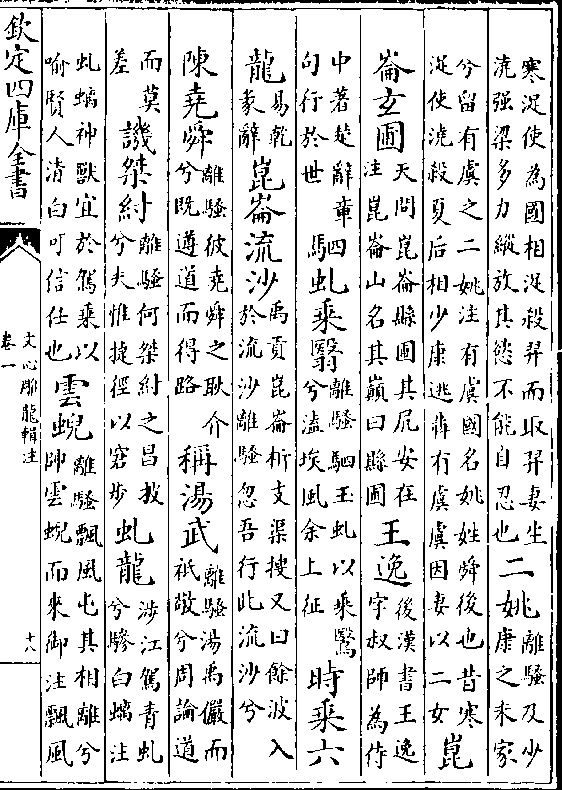 寒浞使為國相浞殺羿而取羿妻生
澆强梁多力縱放其慾不能自忍也
二姚
離騷及少
康之未家
兮留有虞之二姚注有虞國名姚姓舜後也昔寒
浞使澆殺夏后相少康逃犇有虞虞因妻以二女
崑
崙玄圃
天問崑崙縣圃其凥安在
注崑崙山名其巔曰縣圃
王逸
後漢書王逸
字叔師為侍
中著楚辭章
句行於世
駟虬乘翳
離騷駟玉虬以乘鷖
兮溘埃風余上征
時乘六
龍
易乾
彖辭
崑崙流沙
禹貢崑崙析支渠搜又曰餘波入
於流沙離騷忽吾行此流沙兮
陳堯舜
離騷彼堯舜之耿介
兮既遵道而得路
稱湯武
離騷湯禹儼而
祇敬兮周論道
而莫
差
譏桀紂
離騷何桀紂之昌披
兮夫惟捷徑以窘步
虬龍
涉江駕青虬
兮驂白螭注
虬螭神獸宜於駕乘以
喻賢人清白可信任也
雲蜺
離騷飄風屯其相離兮
帥雲蜺而來御注飄風
欽定四庫全書
文心雕龍輯注
卷一
十八